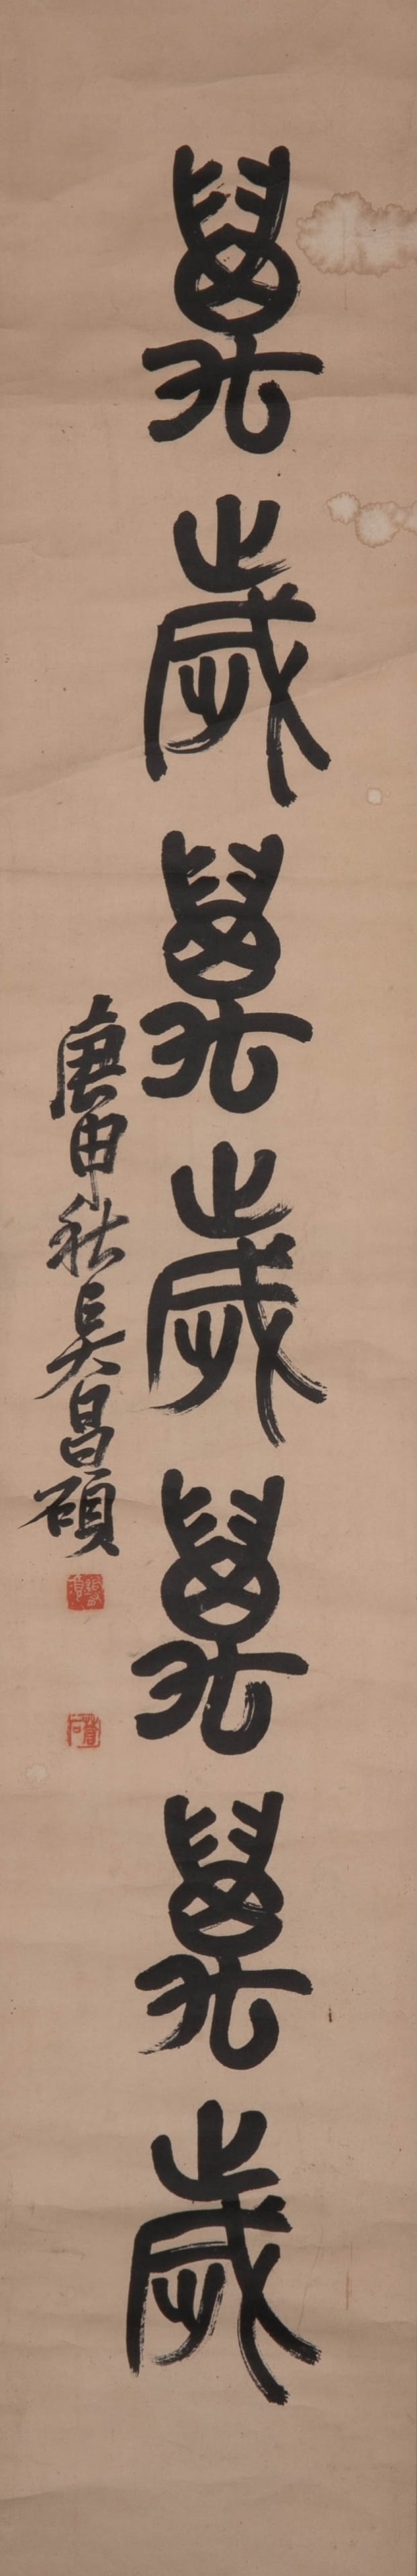 萬歲萬歲萬萬歲
庚申秋吳昌碩